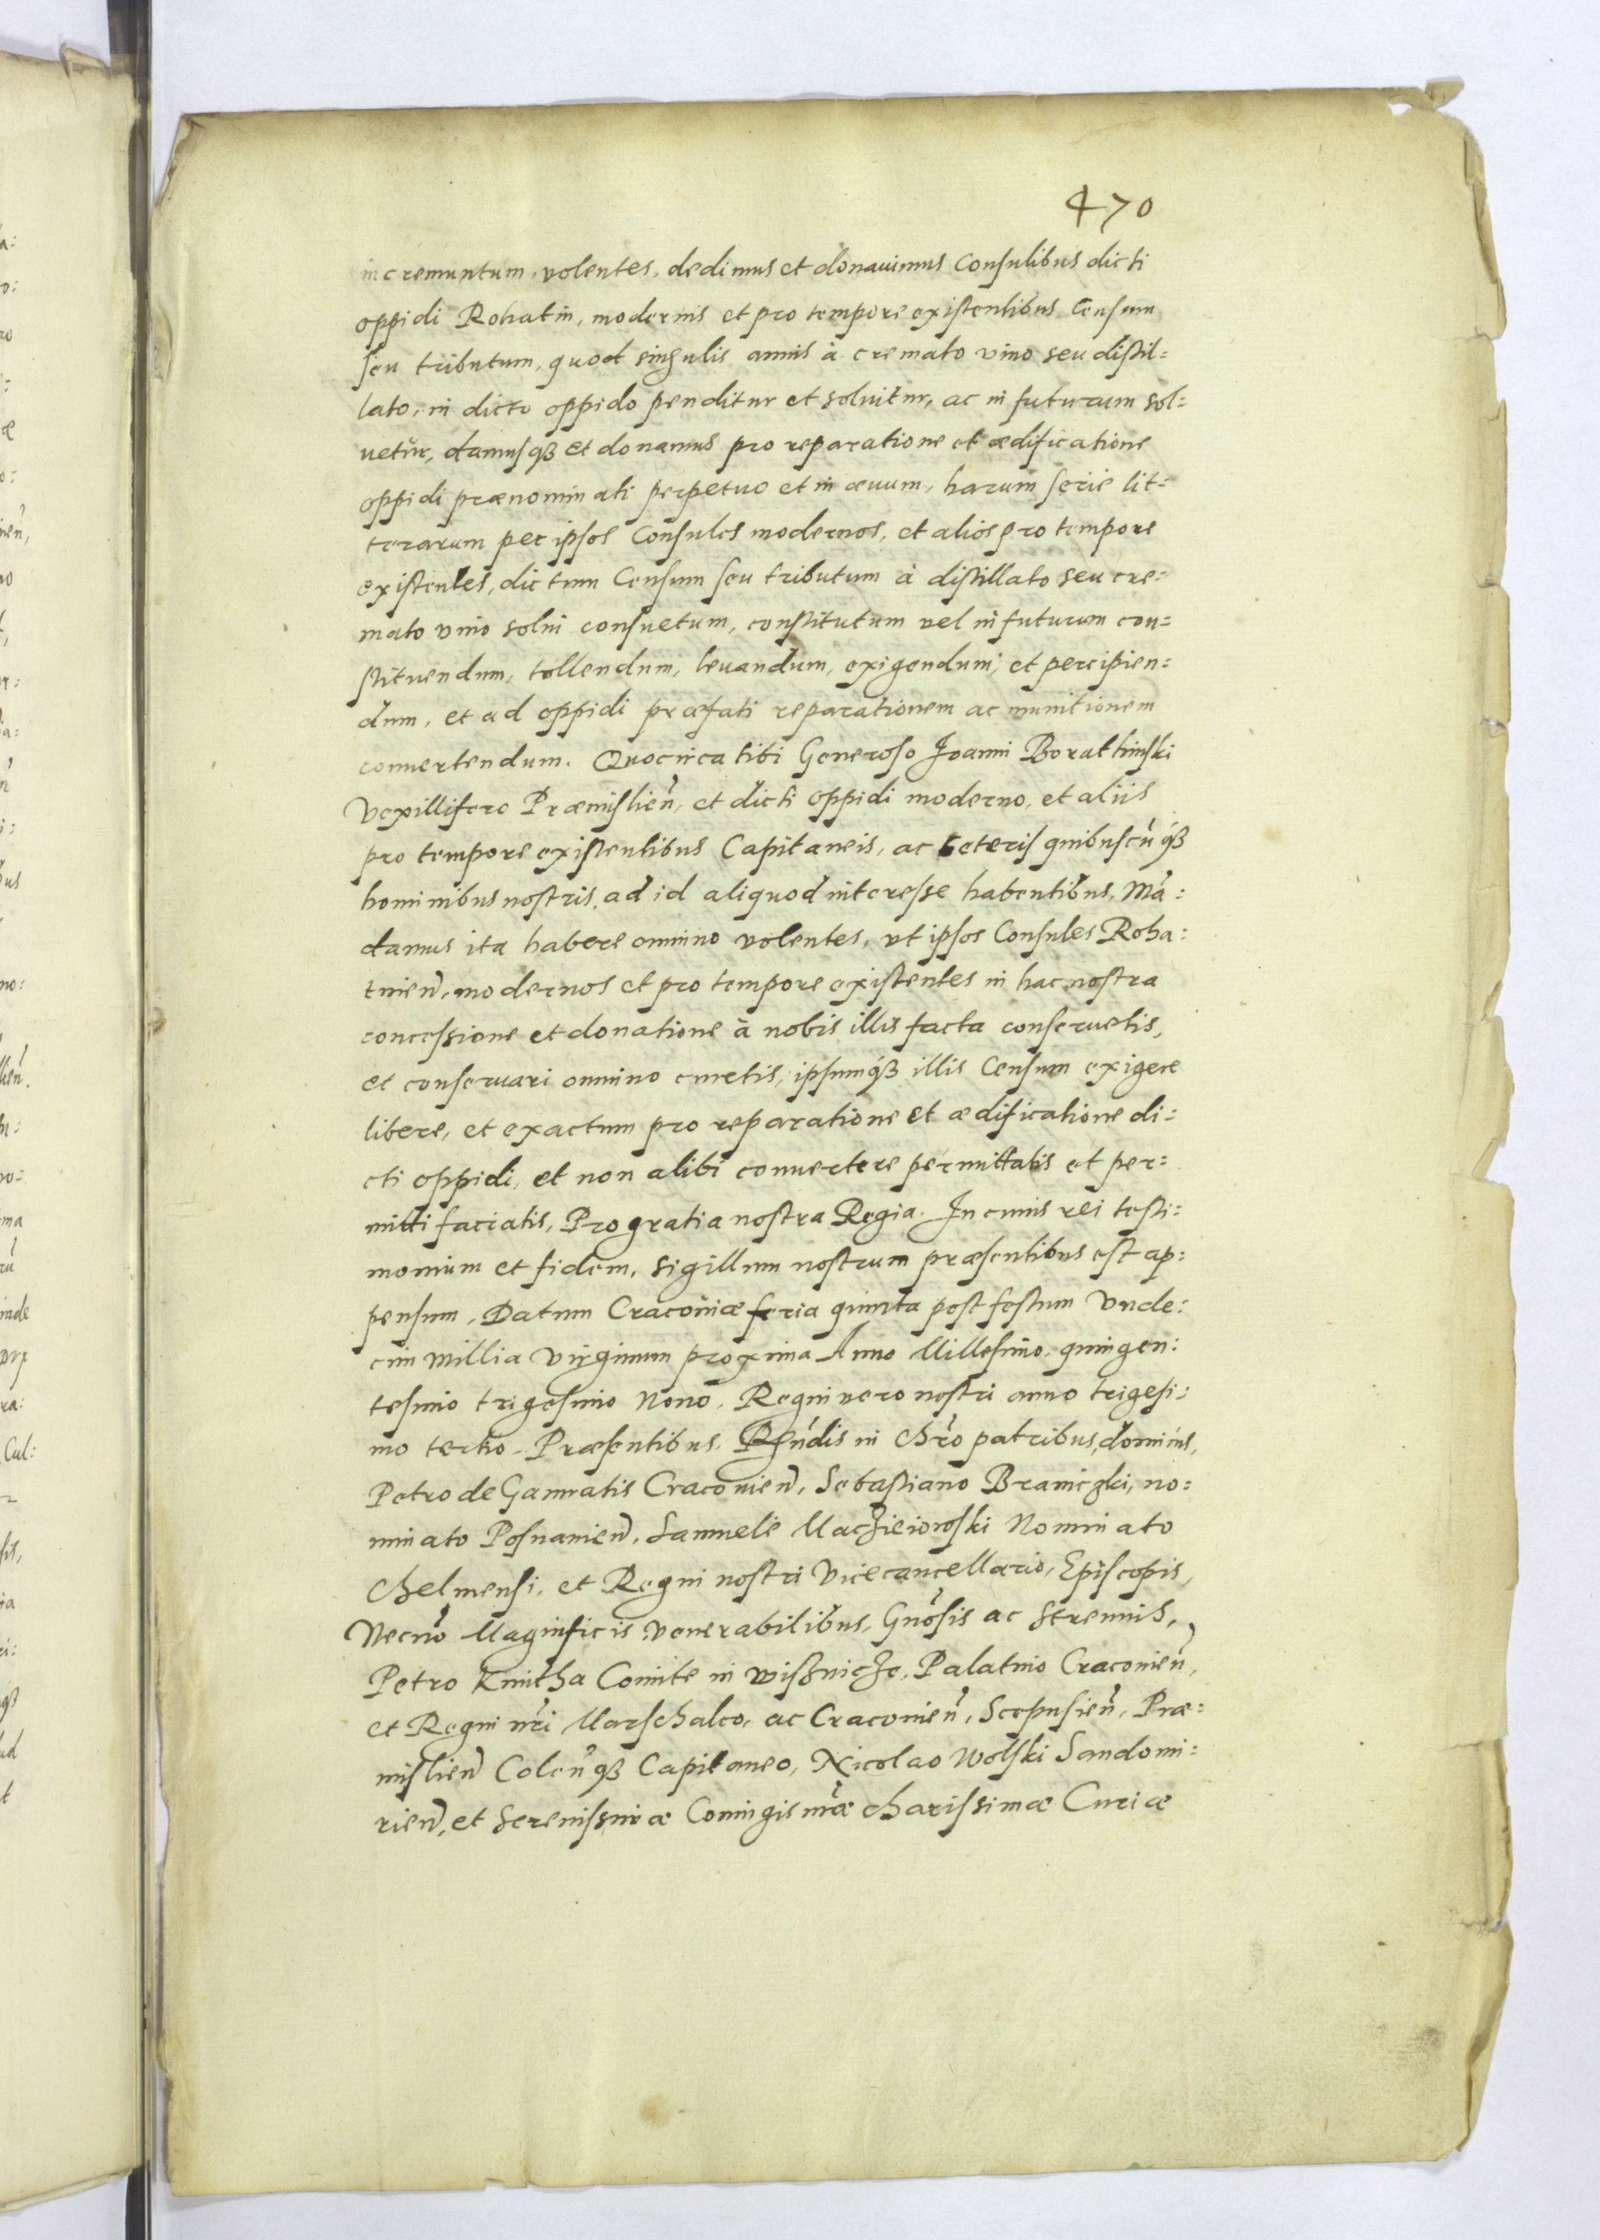 470
incrementum volentes, dedimus et donauimus Consulibus dicti
oppidi Rohatin, modernis et pro tempore existentibus Censum
seu tributum, quod singulis annis à cremato vino seu distil=
lato, in dicto oppido penditur et soluitur, ac in futurum sol=
uetur, damusqȝ et donamus pro reparatione et ædificatione
oppidi prænominati perpetuo et in æuum, harum serie lit=
terarum per ipsos Consules modernos, et alios pro tempore
existentes, dictum Censum seu tributum à distillato seu cre=
mato vino solui consuetum, constitutum vel in futurum con=
stituendum, tollendum, leuandum, exigendum, et percipien=
dum, et ad oppidi præfati reparationem ac munitionem
conuertendum. Quocirca tibi Generoso Joanni Borathinski
Vexillifero Præmislien̄, et dicti oppidi moderno, et aliis
pro tempore existentibus Capitaneis, ac ceteris quibuscūqȝ
hominibus nostris, ad id aliquod interesse habentibus, Mā=
damus ita habere omnino volentes, vt ipsos Consules Roha=
tinien̄, modernos et pro tempore existentes in hac nostra
concessione et donatione à nobis illis facta conseruetis,
et conseruari omnino curetis, ipsumqȝ illis Censum exigere
libere, et exactum pro reparatione et ædificatione di=
cti oppidi, et non alibi conuertere permittatis et per=
mitti faciatis, Pro gratia nostra Regia. In cuius rei testi=
monium et fidem, sigillum nostrum præsentibus est ap=
pensum, Datum Cracoviæ feria quinta post festum Vnde=
cim millia Virginum proxima Anno Millesimo quingen=
tesimo trigesimo Nono, Regni vero nostri anno trigesi=
mo tertio. Præsentibus Rn̄dis in Chrō patribus, dominis,
Petro de Gamratis Cracovien̄, Sebastiano Braniczki, no=
minato Posnanien̄, Samuele Maczieiowski Nominato
Chelmensi, et Regni nostri Vicecancellario, Episcopis,
Necnō Magnificis Venerabilibus, Gnōsis ac Strenuis,
Petro Kmitha Comite in Wisznicze, Palatino Cracouien̄,
et Regni nr̄i Marschalco, ac Cracouien̄, Scepusien̄, Præ=
mislien̄ Colen̄qȝ Capitaneo, Nicolao Wolski Sandomi=
rien̄, et Serenissimæ Coniugis nr̄æ charissimæ Curiæ